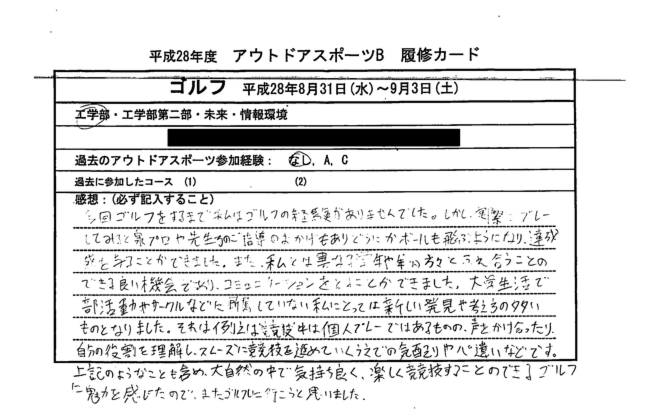 平成28年度 アウトドアスポーツB 履修カード
ゴルフ 平成28年8月31日(水)~9月3日(土)
工学部・工学部第二部・未来・情報環境
過去のアウトドアスポーツ参加経験: なし, A, C
過去に参加したコース (1) (2)
感想:(必ず記入すること)
今回ゴルフをするまで私はゴルフの経験がありませんでした。しかし、実際にプレー
してみると泉プロや先生方のご指導のおかげもありどうにかボールも飛ぶようになり、達成
感を得ることができました。また、私とは異なる学年や年の方々とふれ合うことの
できる良い機会であり、コミュニケーションをとることができました。大学生活で
部活動やサークルなどに所属していない私にとっては新しい発見や考えるの多い
ものとなりました。それは例えば競技中は個人プレーではあるものの、声をかけ合ったり、
自分の役割を理解し、スムーズに競技を進めていくうえでの気配りや心遣いなどです。
上記のようなことも含め、大自然の中で気持ち良く、楽しく競技することのできるゴルフ
に魅力を感じたので、またゴルフに行こうと思いました。